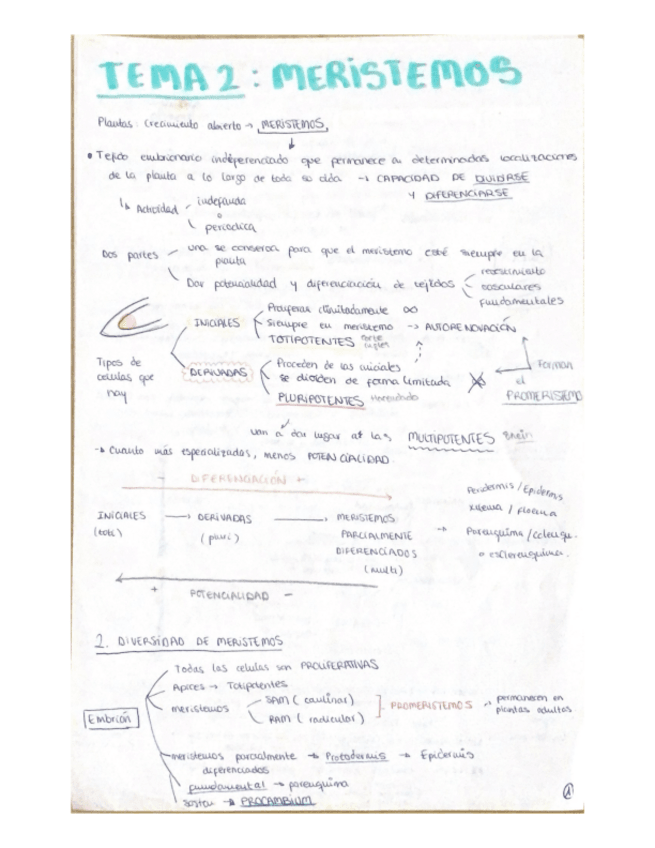 TEMA 2 : MERISTEMOS
Plantas : Crecimiento abierto → MERISTEMOS,
• Tejido embrionario indiferenciado que permanece en determinadas localizaciones
de la planta a lo largo de toda su vida → CAPACIDAD DE DIVIDIRSE
Y DIFERENCIARSE
↳ Actividad
indefinida
o
periodica
Dos partes
una se conserva para que el meristemo esté siempre en la
planta
Dar potencialidad y diferenciación de tejidos
vasculares
fundamentales
INICIALES
Proliferan ilimitadamente ∞
Siempre en meristemo → AUTORENOVACIÓN
TOTIPOTENTES
Tipos de
celulas que
hay
DERIVADAS
Proceden de las iniciales
se dividen de forma limitada
PLURIPOTENTES
Forman
el
PROMERISTEMO
van a dar lugar at las MULTIPOTENTES
→ Cuanto más especializadas, menos POTENCIALIDAD.
- DIFERENCIACIÓN +
INICIALES → DERIVADAS → MERISTEMOS →
(toti) (pluri) PARCIALMENTE
DIFERENCIADOS
(multi)
Peridermis / Epidermis
Xilema / Floema
Parenquima / Colenqu.
o esclerenquima.
+ POTENCIALIDAD -
2. DIVERSIDAD DE MERISTEMOS
Embrión
Todas las celulas son PROLIFERATIVAS
Apices → Totipotentes
meristemos
SAM ( caulinar)
RAM ( radicular)
PROMERISTEMOS → permanecen en
plantas adultas.
meristemos parcialmente → Protodermis → Epidermis
diferenciados
fundamental → parenquima
→ PROCAMBIUM
1